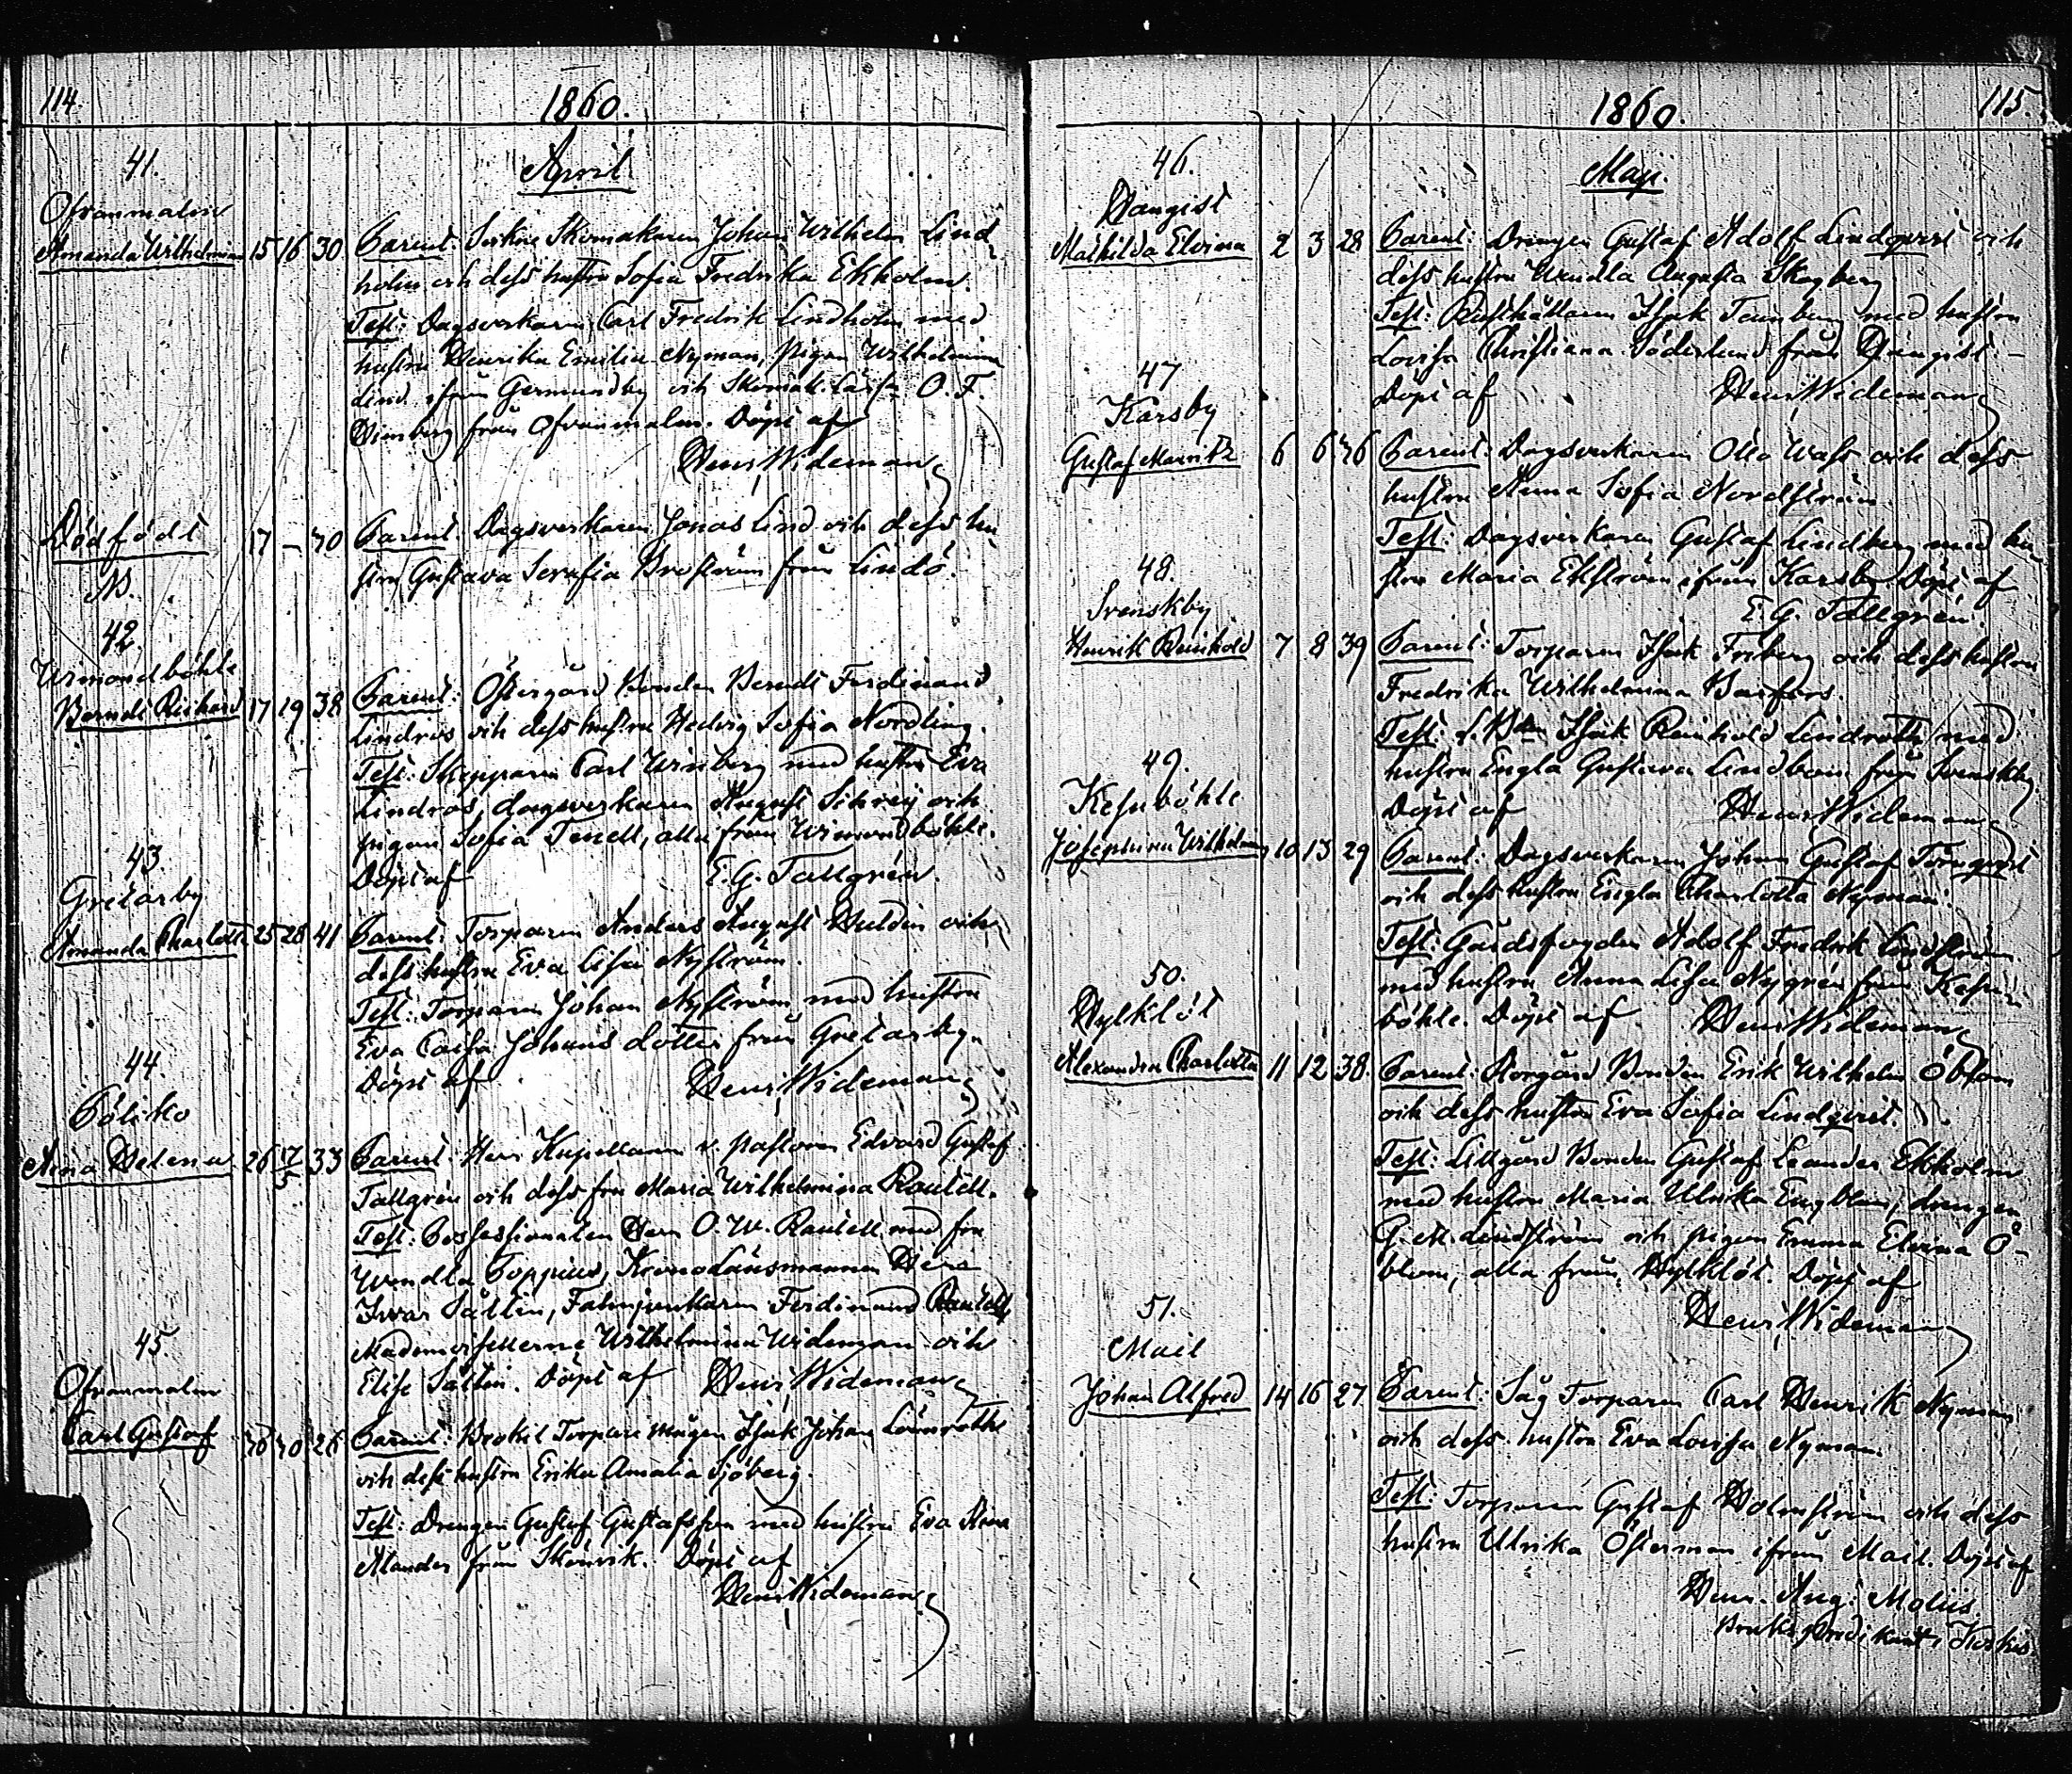 114.
1860.
April
41.
Ofvanmalm
Amanda Wilhelmina 15 16 30 Parent: Sockne Skomakaren Johan Wilhelm Lind-
holm och dess hustru Sofia Fredrika Ekholm.
Test: Dagsverkaren Carl Fredrik Lindholm med
hustru Henrika Emilia Nyman, pigan Wilhelmina
Lind ifrån Germundby och Skomak. O. F.
från Ofvanmalm. Döpt af
Henr. Wideman
Dödfödt 17 – 40 Parent. Dagsverkaren Jonas Lind och dess hu
stru Gustava Serafia Broström från Lindö.
42.
Wimondböhle
Berndt Richard 17 19 38 Parent: Östergård Bonden Berndt Ferdinand
Lindros och dess hustru Hedvig Sofia Nordling.
Test: Skepparen Carl Winberg med hustru Eva
Lindros, dagsverkaren August och
pigan Sofia Tenell, alla från Wimondböhle.
Döpt af E. G. Tallgrén.
43.
Gretarby
Amanda Charlotta 25 28 41 Parent: Torparen Anders August Huldin och
dess hustru Eva Lisa Nyström.
Test: Torparen Johan Nyström med hustru
Eva Caisa Johans dotter från Gretarby.
Döpt af Henr. Wideman
44.
Pöliko
Aina Helena 26 17/5 33 Parent. Herr Kapellanen v. pastoren Edvard Gustaf
Tallgrén och dess fru Maria Wilhelmina Rautell.
Test: Possessionaten Herr O. W. Rautell med fru
Wendla Toppius, Kronolänsmannen Herr
Ivar Sallin, Fahnjunkaren Ferdinand Rautell,
Mademoisellerne Wilhelmina Wideman och
Elise Sallin. Döpt af Henr. Wideman
45
Ofvanmalm
Carl Gustaf 28 30 26 Parent: Torpare mågen Isak Johan Lönnroth
och dess hustru Erika Amalia Sjöberg.
Test: Drengen Gustaf Gustafsson med hustru Eva Stina
Mander från Skönvik. Döpt af
Henr. Wideman
1860.
115.
Maji.
46.
Hangist
Mathilda Elvina 2 3 28 Parent: Drengen Gustaf Adolf Lindqvist och
dess hustru Wendla Augusta Skogberg
Test: Rusthållaren Isak Tannberg med hustru
Lovisa Christiana Söderlund från Hangist.
Döpt af Henr. Wideman
47
Karsby
Gustaf Mauritz 6 6 36 Parent: Dagsverkaren Otto Wass och dess
hustru Anna Sofia Nordström.
Test: Dagsverkaren Gustaf Lindberg med hu
stru Maria Ekström ifrån Karsby. Döpt af
E. G. Tallgrén.
48.
Svenskby
Henrik Reinhold 7 8 39 Parent: Torparen Isak Friberg och dess hustru
Fredrika Wilhelmina Barfors.
Test: Isak Reinhold Lindroth med
hustru Engla Gustava Lindbom från Svenskby.
Döpt af Henr. Wideman
49.
Kesuböhle
Josephina Wilhelmina 10 13 29 Parent: Dagsverkaren Johan Gustaf Törnqvist
och dess hustru Engla Charlotta Nyman.
Test: Gårdsfogden Adolf Fredrik Lindström
med hustru Anna Lisa Nygrén från Kesu-
böhle. Döpt af Henr. Wideman
50.
Hylklöt
Alexandra Charlotta 11 12 38. Parent: Norgård Bonden Erik Wilhelm Öblom
och dess hustru Eva Sofia Lindqvist.
Test: Lillgård Bonden Gustaf Leander Ekholm
med hustru Maria Ulrika Engblom, drengen
G. M. Lindström och pigan Emma Elvina Ö-
blom, alla från Hylklöt. Döpt af
Henr. Wideman
51.
Mail
Johan Alfred 14 16 27 Parent: Såg Torparen Carl Henrik Nyman
och dess hustru Eva Lovisa Nyman.
Test: Torparen Gustaf Holmström och dess
hustru Ulrika Österman ifrån Mail. Döpt af
Henr. Aug: Molüs
Bruks predikant i Koskis